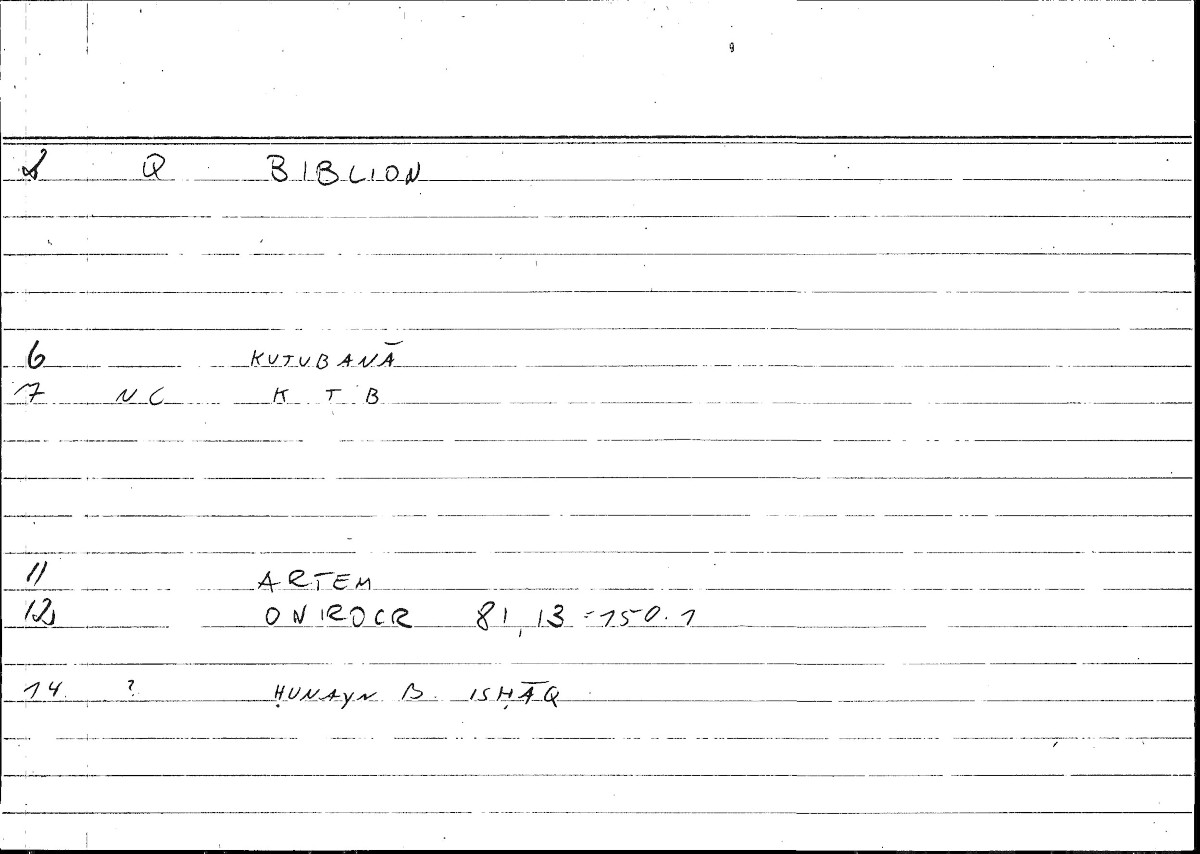 Q BIBLION
6 KUTUBANĀ
7 NC K T B
11 ARTEM
12 ONIROCR 81,13 = 150.1
14 ? ḤUNAYN B. ISḤĀQ